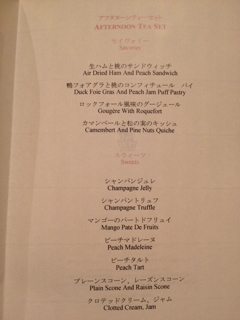 アフタヌーンティーセット
AFTERNOON TEA SET
セイヴォリー
Savories
生ハムと桃のサンドウィッチ
Air Dried Ham And Peach Sandwich
鴨フォアグラと桃のコンフィチュール パイ
Duck Foie Gras And Peach Jam Puff Pastry
ロックフォール風味のグージェール
Gougère With Roquefort
カマンベールと松の実のキッシュ
Camembert And Pine Nuts Quiche
スウィーツ
Sweets
シャンパンジュレ
Champagne Jelly
シャンパントリュフ
Champagne Truffle
マンゴーのパートドフリュイ
Mango Pate De Fruits
ピーチマドレーヌ
Peach Madeleine
ピーチタルト
Peach Tart
プレーンスコーン、レーズンスコーン
Plain Scone And Raisin Scone
クロテッドクリーム、ジャム
Clotted Cream, Jam